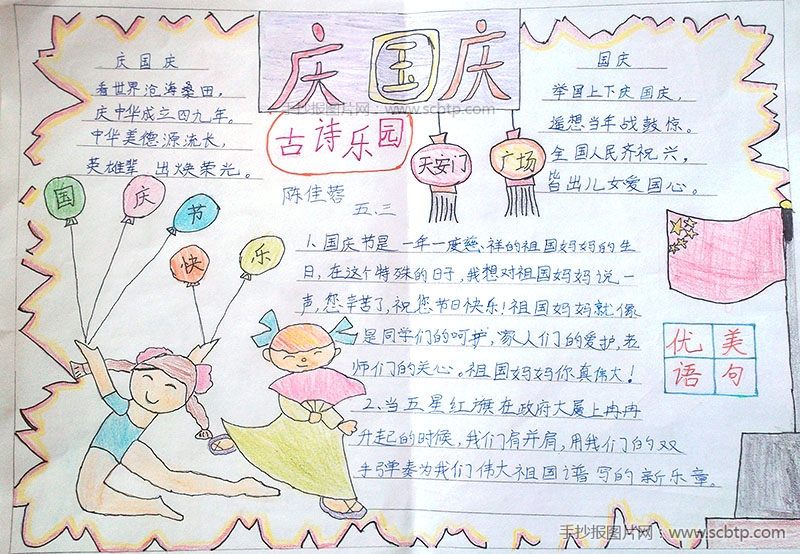 庆国庆
庆国庆
看世界沧海桑田，
庆中华成立四九年。
中华美德源流长，
英雄辈出焕荣光。
国庆
举国上下庆国庆，
遥想当年战鼓惊。
全国人民齐祝兴，
皆出儿女爱国心。
手抄报图片网 · www.scbtp.com
古诗乐园
天安门
广场
陈佳蓉
五.三
国庆节
快乐
1、国庆节是一年一度慈祥的祖国妈妈的生
日，在这个特殊的日子，我想对祖国妈妈说一
声，您辛苦了，祝您节日快乐！祖国妈妈就像
是同学们的呵护，家人们的爱护，老
师们的关心。祖国妈妈你真伟大！
2、当五星红旗在政府大厦上冉冉
升起的时候，我们肩并肩，用我们的双
手弹奏为我们伟大祖国谱写的新乐章。
优美
语句
手抄报图片网 · www.scbtp.com